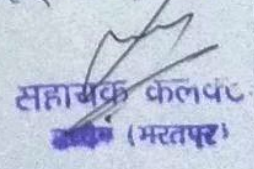 सहायक कलक्टर
(भरतपुर)